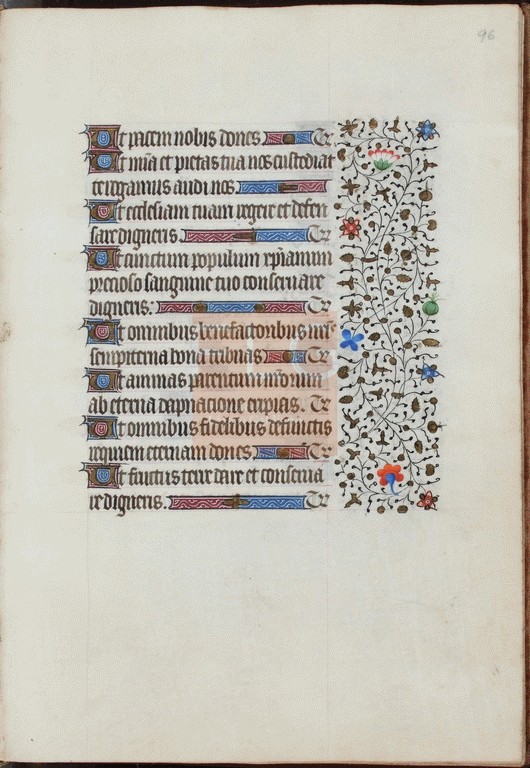 96
Ut pacem nobis dones Te r
Ut mia et pietas tua nos custodiat
te rogamus audi nos
Ut ecclesiam tuam regere et defen
sare digneris. Te r
Ut sanctum populum xpianum
precioso sanguine tuo conservare
digneris: Te r
Ut omnibus benefactoribus nris
sempiterna bona tribuas Te r
Ut animas parentum nrorum
ab eterna dapnacione eripias. Te r
Ut omnibus fidelibus defunctis
requiem eternam dones Te r
Ut fructus terre dare et conserva
re digneris. Te r